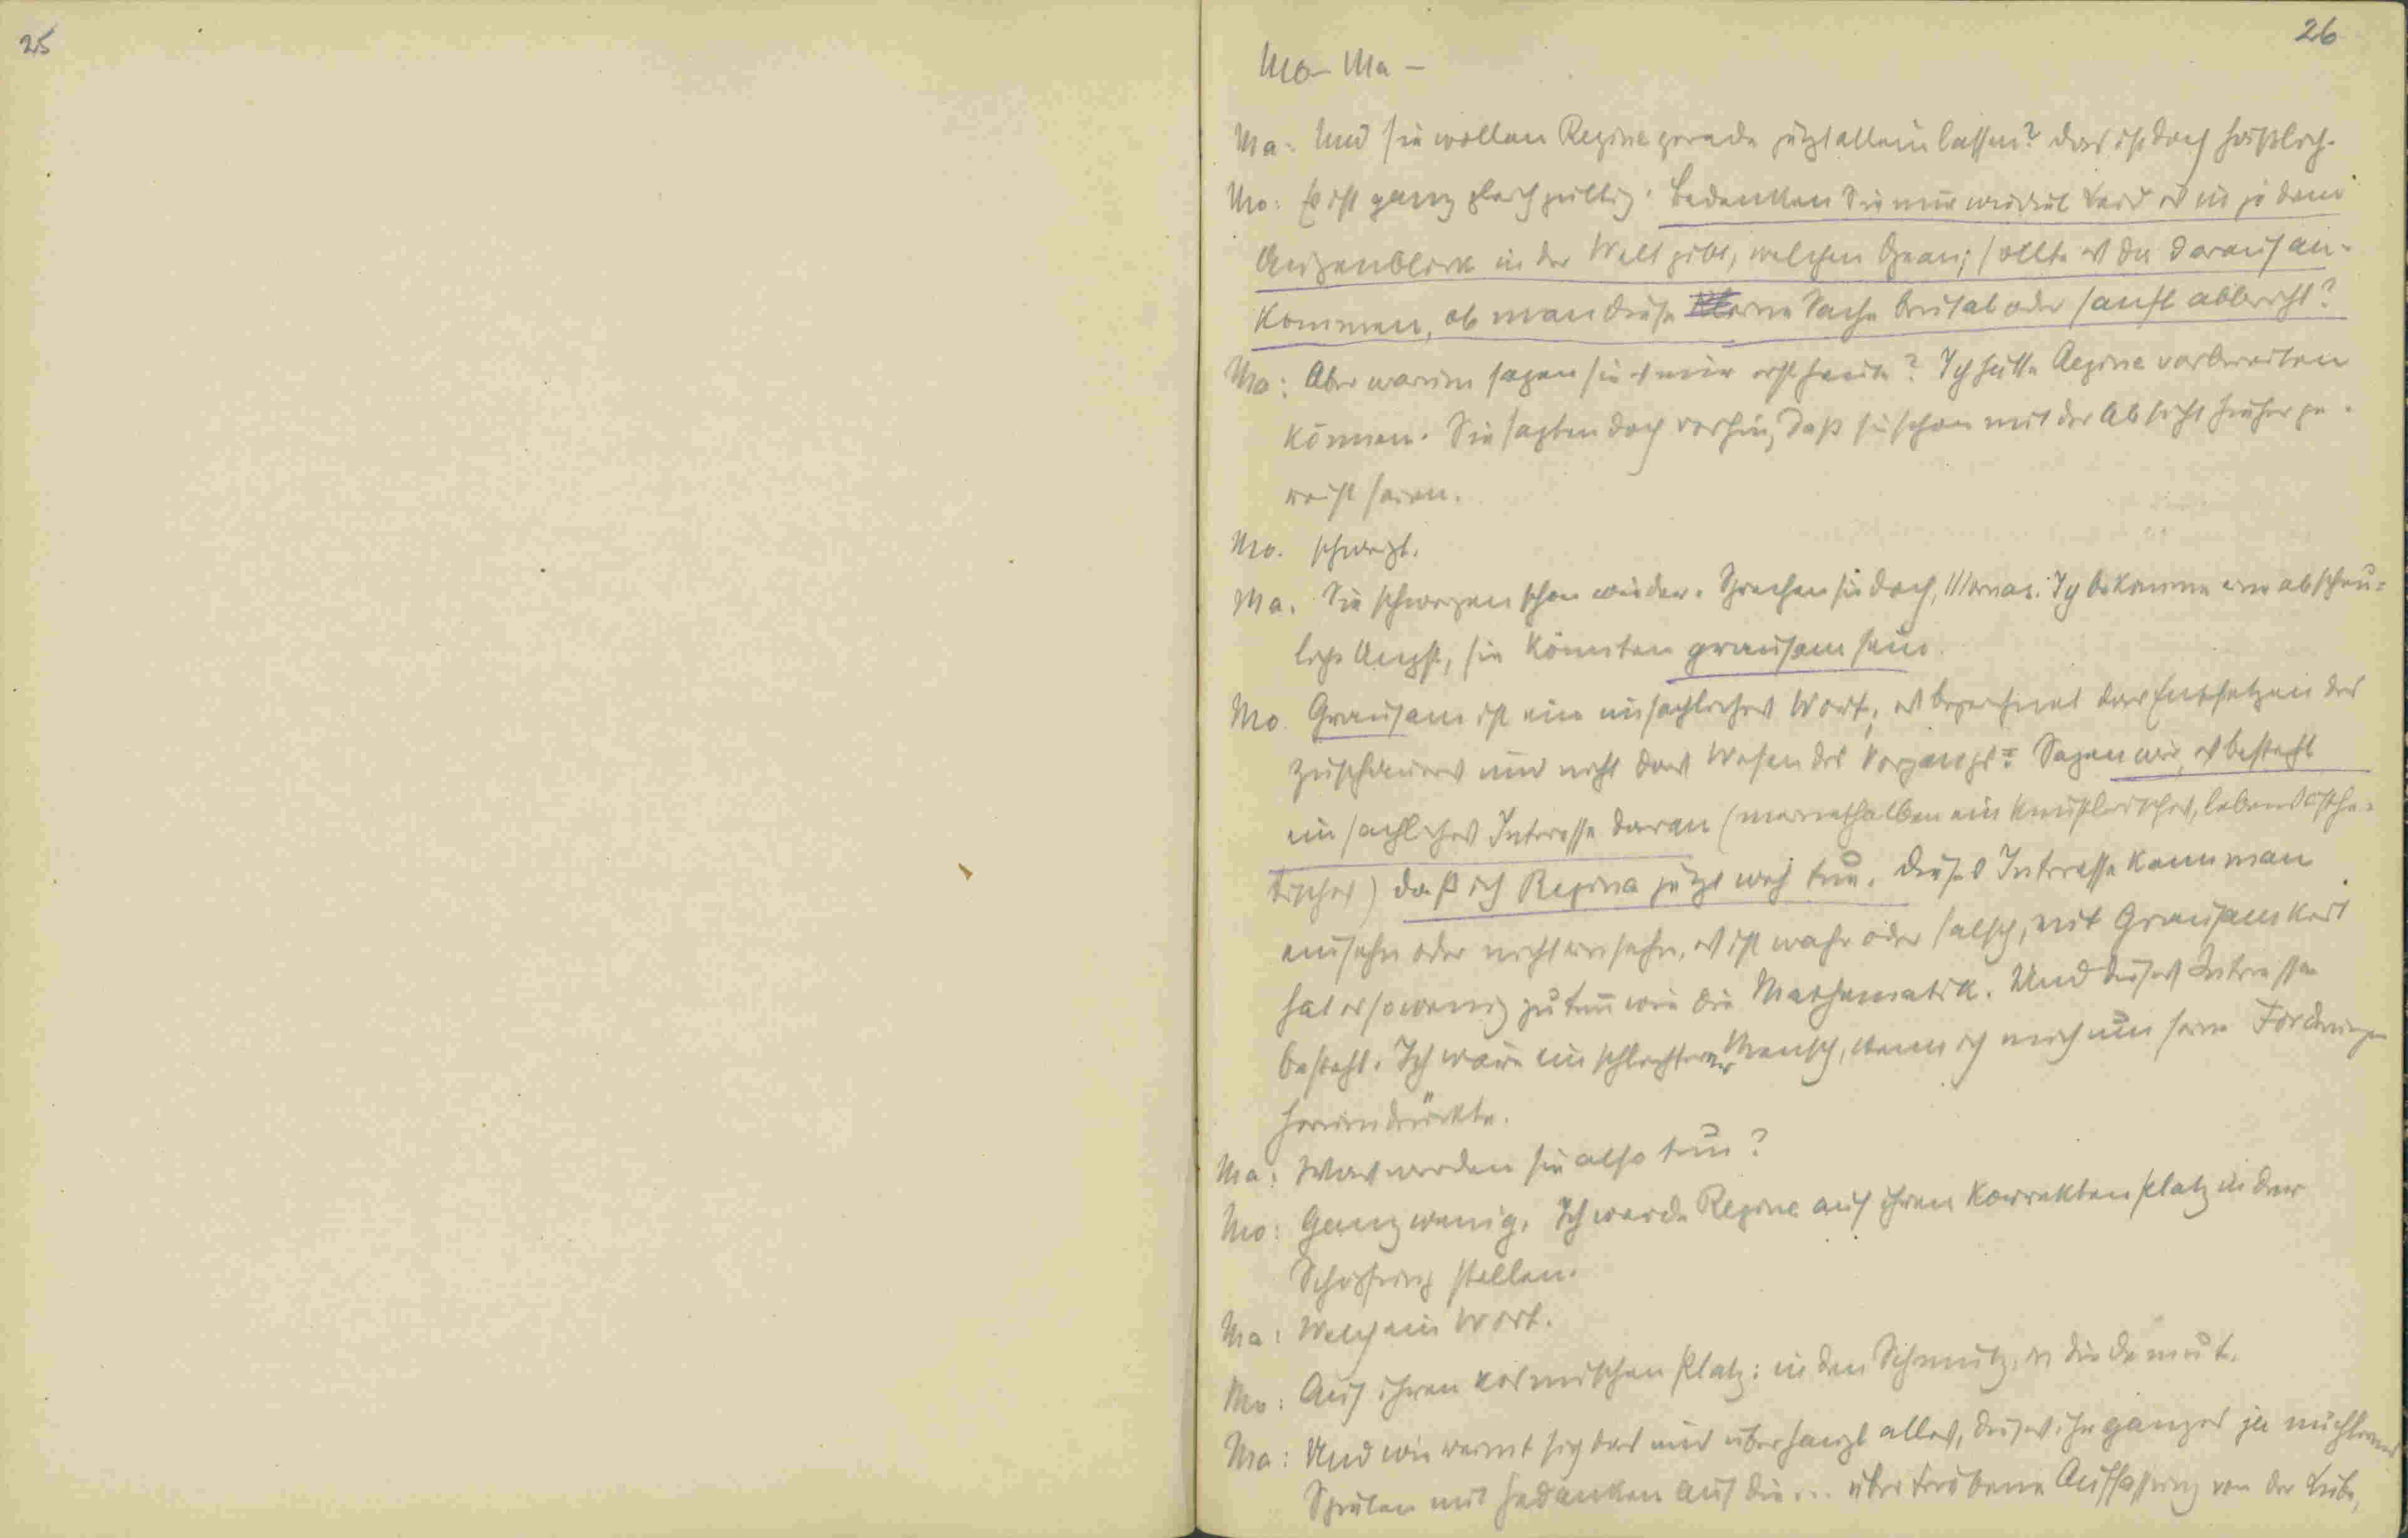 25
26
Mo- Ma -
Ma: Und sie wollen Regine gerade jetzt allein lassen? Das ist doch häßlich.
Mo: Es ist ganz gleichgültig. Bedenken Sie nur wieviel Leid es in jedem
Augenblick in der Welt gibt, welchen Ozean; sollte es da darauf an-
kommen, ob man diese kleine Sache brutal oder sanft abbricht?
Ma: Aber warum sagen sie es mir erst heute? Ich hätte Regine vorbereiten
können. Sie sagten doch vorhin, daß sie schon mit der Absicht hieher ge-
reist seien.
Mo. schweigt.
Ma. Sie schweigen schon wieder. Sprechen sie doch, Mornas. Ich bekomme eine abscheu-
liche Angst, sie könnten grausam sein.
Mo Grausam ist ein unsachliches Wort, es bezeichnet das Entsetzen des
Zuschauers und nicht das Wesen des Vorgangs. Sagen wir, es besteht
ein sachliches Interesse daran (meinethalben ein künstlerisches, lebensästhe-
tisches) daß ich Regina jetzt weh tue. Dieses Interesse kann man
einsehn oder nicht einsehn, es ist wahr oder falsch, mit Grausamkeit
hat es sowenig zu tun wie die Mathematik. Und dieses Interesse
besteht. Ich wäre ein schlechter Mensch, wenn ich mich um seine Forderungen
herumdrückte.
Ma: Was werden sie also tun?
Mo: Ganz wenig. Ich werde Regine auf ihren korrekten Platz in der
Schöpfung stellen.
Ma: Welch ein Wort.
Mo: Auf ihren kosmischen Platz: in den Schmutz, in die Demut.
Ma: Und wie reimt sich das und überhaupt alles, dieses ihr ganzes ja nüchternes
Spielen mit Gedanken auf die ... übertriebene Auffassung von der Liebe,